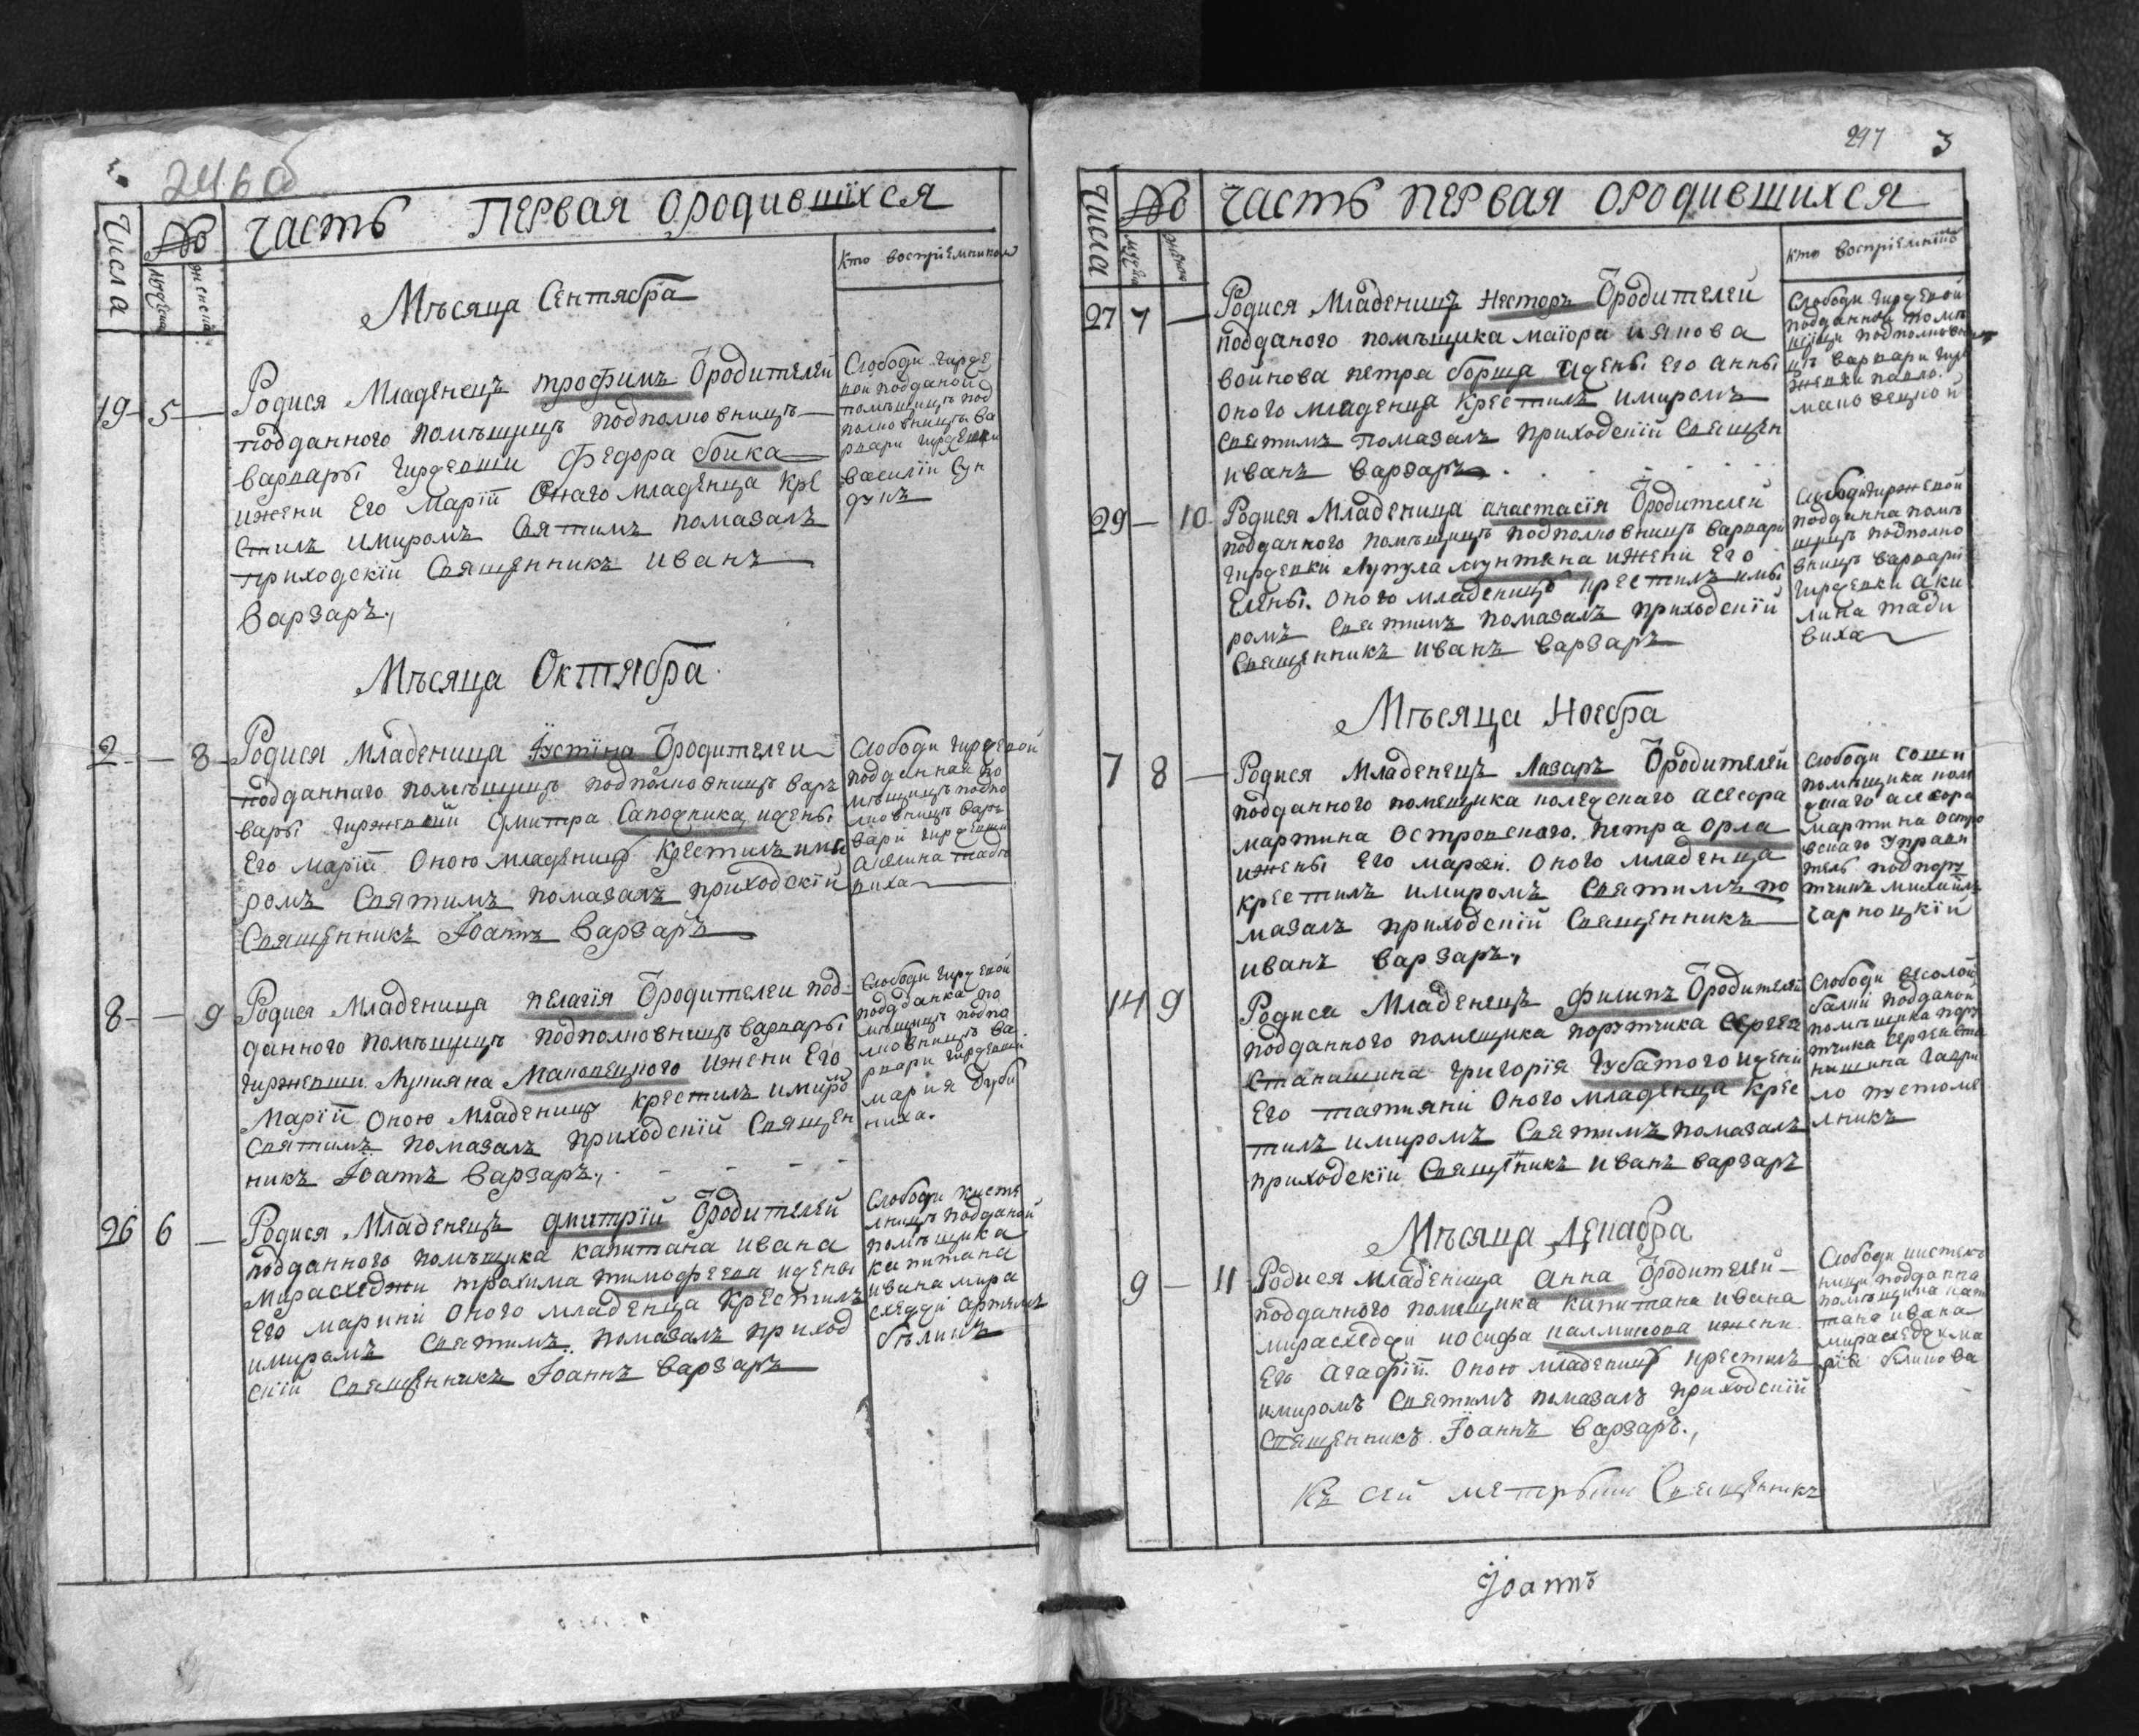 246об
Числа
№
Часть Первая ородившихся
Мужеска
женска
кто восприемником
Мѣсяца Сентября
19 5 — Родися Младенецъ трофимъ Ѿродителей
подданного помѣщицѣ подполковницѣ
варвары гирженки Федора бойка
ижени Его Марїи Онаго младенца Кре
стилъ имиромъ Святимъ помазалъ
приходскїй Священникъ Иванъ
Варзаръ.,
Слободи гирже
вой подданой
помѣщицѣ под
полковницѣ ва
рвари гирженки
василїй
Мѣсяца Октября
2 — 8 Родися Младеница Їустїна Ѿродителей
подданнаго помѣщицѣ подполковницѣ вар
вары гирженкїй дмитра Сапожника, ижены
Его марїи Оною младеницу Крестилъ ими
ромъ Святимъ помазалъ приходскїй
Священникъ Їоаннъ Варзаръ
Слободи гиржевой
подданная по
мѣщицѣ подпо
лковницѣ вар
вари гирженки
виха
8 — 9 Родися Младеница пелагїя Ѿродителей под
данного помѣщицѣ подполковницѣ варвары
гирженки Лупияна Маковецкого ижени Его
Марїи Оною младеницу крестилъ имиро
Святимъ помазалъ приходскїй Священ
никъ Їоаннъ Варзаръ.,
Слободи гиржевой
подданка по
мѣщицѣ подпо
лковницѣ ва
рвари гирженки
мария
ниха.
26 6 — Родися Младенецъ дмитрїй Ѿродителей
подданного помѣщика капитана ивана
Мирасхеджи трохима тимофеева ижены
Его марини Оного младенца Крестилъ
имиромъ Святимъ помазалъ приход
скїй Священникъ Їоаннъ Варзаръ
Слободи
подданой
помѣщика
капитана
ивана мира
схеджи артемъ
бѣликъ
297 3
Числа
№
Часть первая ородившихся
Мужеска
женска
кто восприемникомъ
27 7 — Родися Младенецъ Несторъ Ѿродителей
подданого помѣщика маїора иянова
войнова петра борща ижены Его Анны
Оного младенца Крестилъ имиромъ
Святимъ помазалъ приходскїй Священ
иванъ варзаръ
Слободи гиржевой
подданной помѣ
щици подполковни
цѣ варвари гир
женки павло
маковецкой
29 — 10 Родися Младеница анастасїя Ѿродителей
подданного помѣщицѣ подполковницѣ варвари
гирженки Лупула мунтяна ижени Его
Елены. Оного младеницу крестилъ ими
ромъ Святимъ помазалъ приходскїй
Священникъ иванъ варзаръ
Слободи гиржевой
подданна помѣ
щицѣ подполко
вницѣ варвари
гирженки аки
лина тади
виха
Мѣсяца Ноебра
7 8 — Родися Младенецъ Лазаръ Ѿродителей
подданного помещика колежского асесора
мартина Островского. петра Орла
ижены Его марїи. Оного младенца
крестилъ имиромъ Святимъ по
мазалъ приходскїй Священникъ
иванъ варзаръ.,
Слободи
помѣщика кол
асесора
мартина остро
вскаго управи
тель подпору
тчикъ михайлъ
чарноцкїй
14 9 Родися Младенецъ Филипъ Ѿродителей
подданного помещика порутчика сергея
Григорїя губатого ижени
Его татияни Оного младенца Крес
тилъ имиромъ Святимъ помазалъ
приходскїй Священикъ иванъ варзаръ
Слободи веселой
балки подданой
помѣщика пору
тчика сергея ста
гаври
ло пустоме
лникъ
Мѣсяца Декабра
9 — 11 Родися младеница Анна Ѿродителей
подданного помещика капитана ивана
мирасхеджи иосифа калмикова ижени
Его Агафїи. Оною младеницу крестилъ
имиромъ Святимъ помазалъ приходскїй
Священникъ Їоаннъ Варзаръ.,
Слободи
подданна
помѣщика капи
тана ивана
мирасхеджи ма
рїя беликова
Къ сей метрыки Священникъ
Їоаннъ